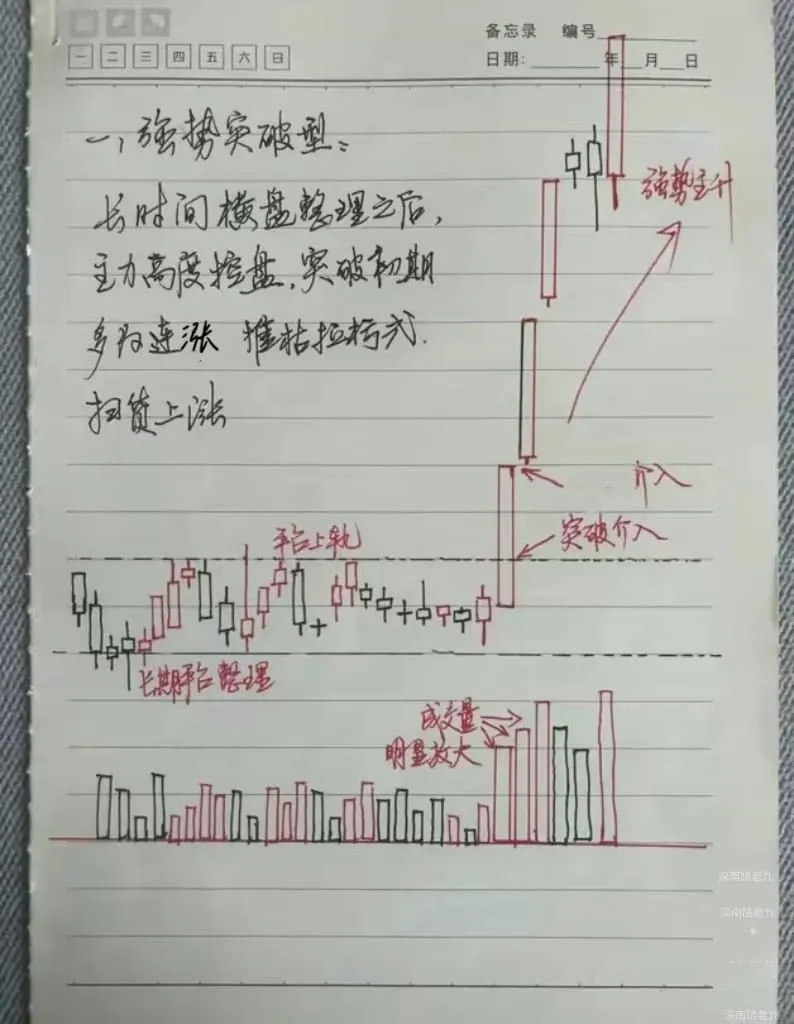 备忘录 编号
一 二 三 四 五 六 日
日期: 年 月 日
一，强势突破型：
长时间横盘整理之后，
主力高度控盘，突破初期
多为连涨 摧枯拉朽式.
扫货上涨
强势主升
介入
突破介入
平台上轨
长期平台整理
成交量
明显放大
深南路老九
深南路老九
深南路老九